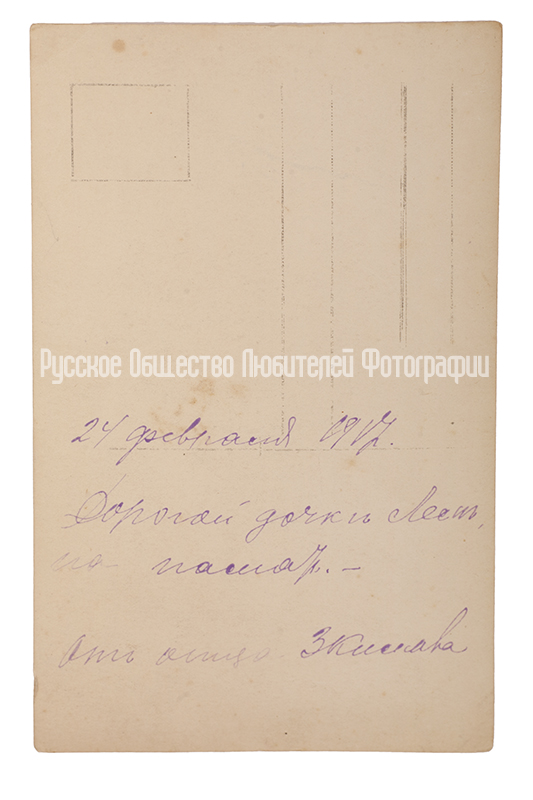 Русское Общество Любителей Фотографии
24 февраля 1917.
Дорогой дочкѣ
на память.-
Отъ отца